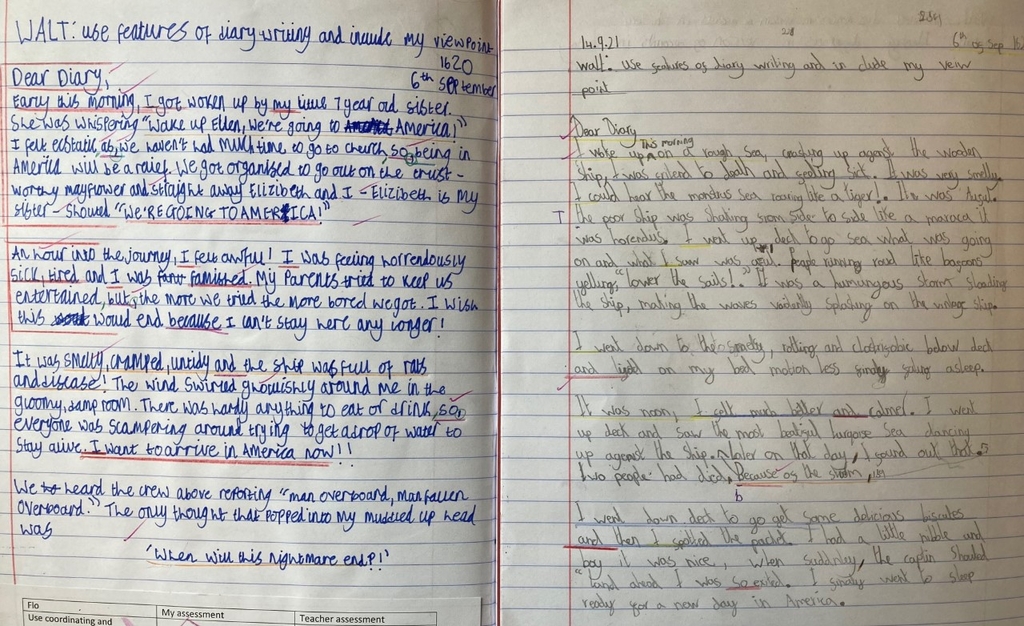 WALT: use features of diary writing and include my viewpoint
1620
6th September
Dear Diary,
Early this morning, I got woken up by my little 7 year old sister.
She was whispering "Wake up Ellen, we're going to America!"
I felt ecstatic, as, we haven't had much time to go to church so, being in
America will be a relief. We got organised to go out on the crust-
worthy mayflower and straight away Elizibeth and I - Elizibeth is my
sister - Shouted "WE'RE GOING TO AMERICA!"
An hour into the journey, I felt awful! I was feeling horrendously
sick, tired and I was famished. My Parents tried to keep us
entertained, but, the more we tried the more bored we got. I wish
this would end because I can't stay here any longer!
It was smelly, cramped, untidy and the ship was full of rats
and disease! The wind swirled ghoulishly around me in the
gloomy, damp room. There was hardly anything to eat or drink, so,
everyone was scampering around trying to get a drop of water to
stay alive. I want to arrive in America now!!
We heard the crew above reporting "man overboard, man fallen
overboard." The only thought that popped into my muddled up head
was
'When will this nightmare end?!'
Flo
My assessment
Teacher assessment
Use coordinating and
14.9.21
6th of Sep
walt: use features of diary writing and in clude my veiw
point
Dear Diary
I woke up This morning on a rough sea, crashing up against the wooden
Ship, I was to death and sick. It was very smelly.
I could hear the sea roaring like a tiger! It was
the poor ship was shaking from side to side like a maraca it
was horendus. I went up deck to go sea what was going
on and what I saw was People running like
yelling, "lower the sails!" It was a humungous storm
the ship, making the waves splashing on the ship.
I went down to the rotting and below deck
and on my bed motion less asleep.
It was noon, I felt much better and calmer. I went
up deck and saw the most sea dancing
up against the ship. Later on that day, I found out that
two people had died, Because of the storm,
b
I went down deck to go get some delicious
and then I the packet. I had a little nibble and
boy it was nice, when the captin shouted
"land ahead I was so I went to sleep
ready for a new day in America.